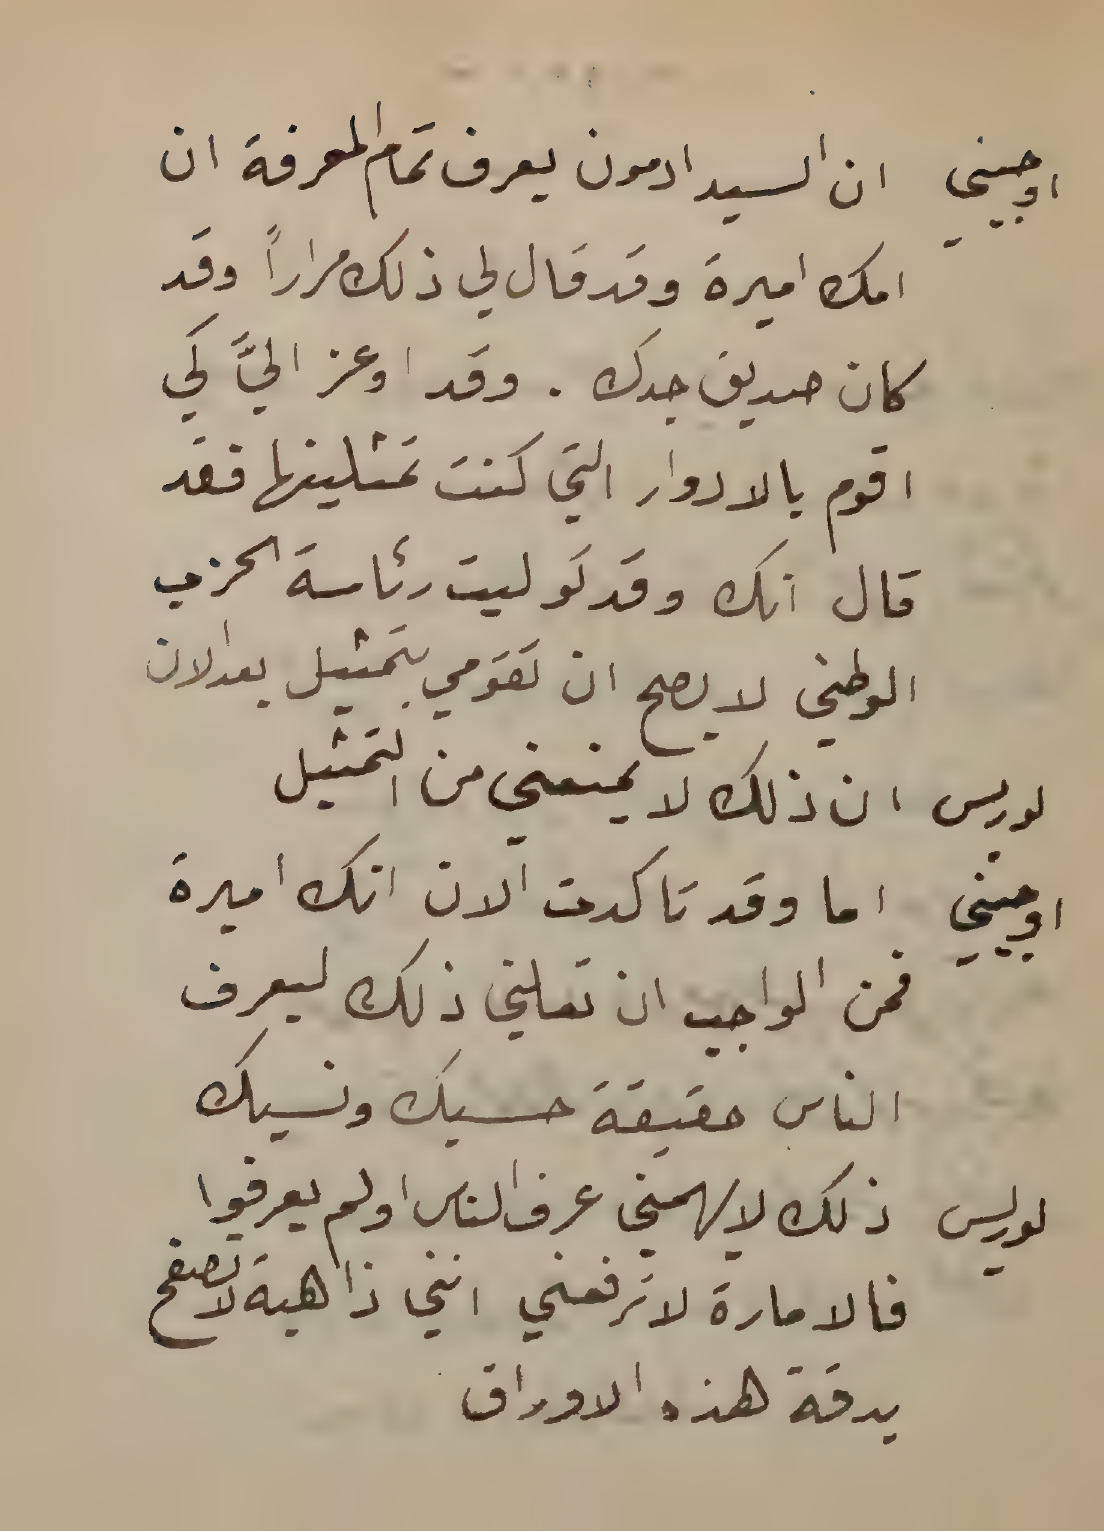 اوجيني ان السيد ادمون يعرف تمام المعرفة ان
امك اميرة وقد قال لي ذلك مراراً وقد
كان صديق جدك . وقد اوعز اليَّ لكي
اقوم بالادوار التي كنت تمثلينها فقد
قال انك وقد توليت رئاسة الحزب
الوطني لا يصح ان تقومي بتمثيل بعد الان
لوريس ان ذلك لا يمنعني من التمثيل
اوجيني اما وقد تاكدت الان انك اميرة
فمن الواجب ان تعلني ذلك ليعرف
الناس حقيقة حسبك ونسبك
لوريس ذلك لا يهمني عرف الناس اولم يعرفوا
فالامارة لا ترفعني انني ذاهبة لاتصفح
بدقة هذه الاوراق